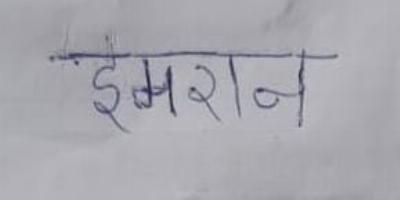 इमरान